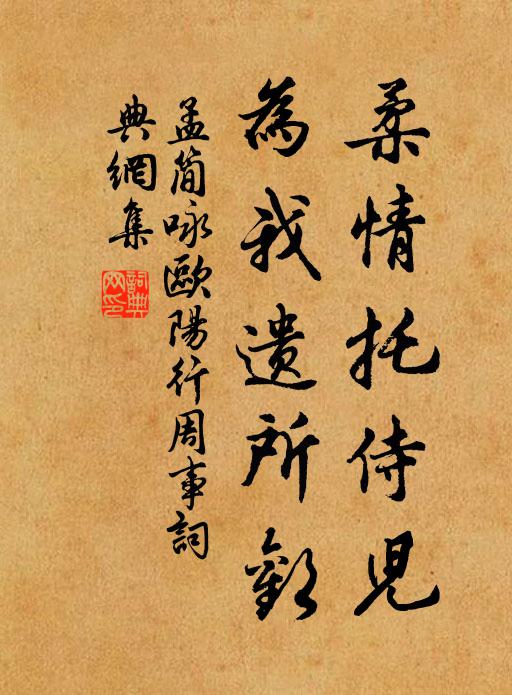 柔情托侍兒
為我遺所歡
孟簡咏歐陽行周事詞
典網集
詞典
网印